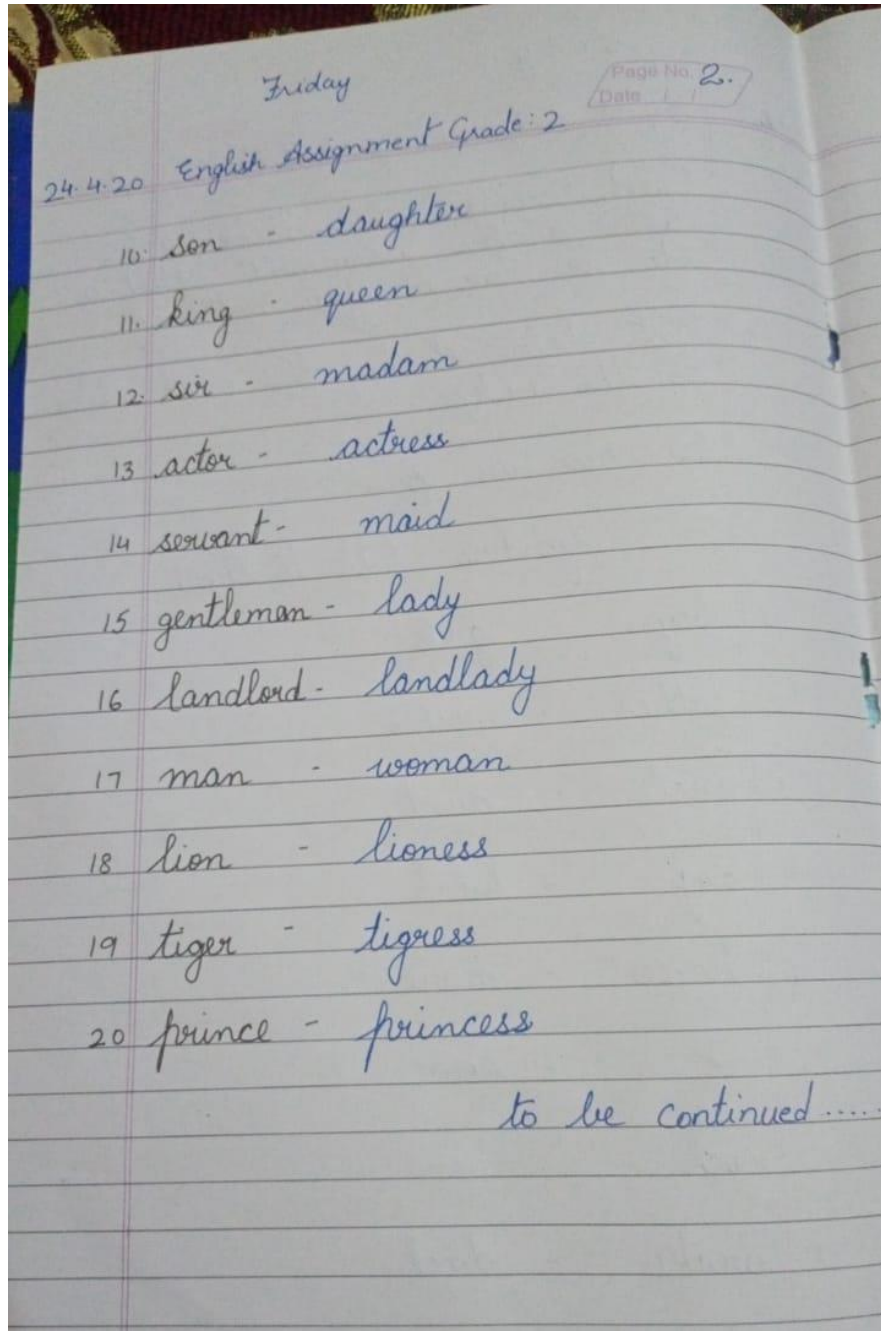 Friday
Page No. 2.
Date / /
24.4.20 English Assignment Grade: 2
10. son - daughter
11. king - queen
12. sir - madam
13 actor - actress
14 servant - maid
15 gentleman - lady
16 landlord - landlady
17 man - woman
18 lion - lioness
19 tiger - tigress
20 prince - princess
to be continued.....